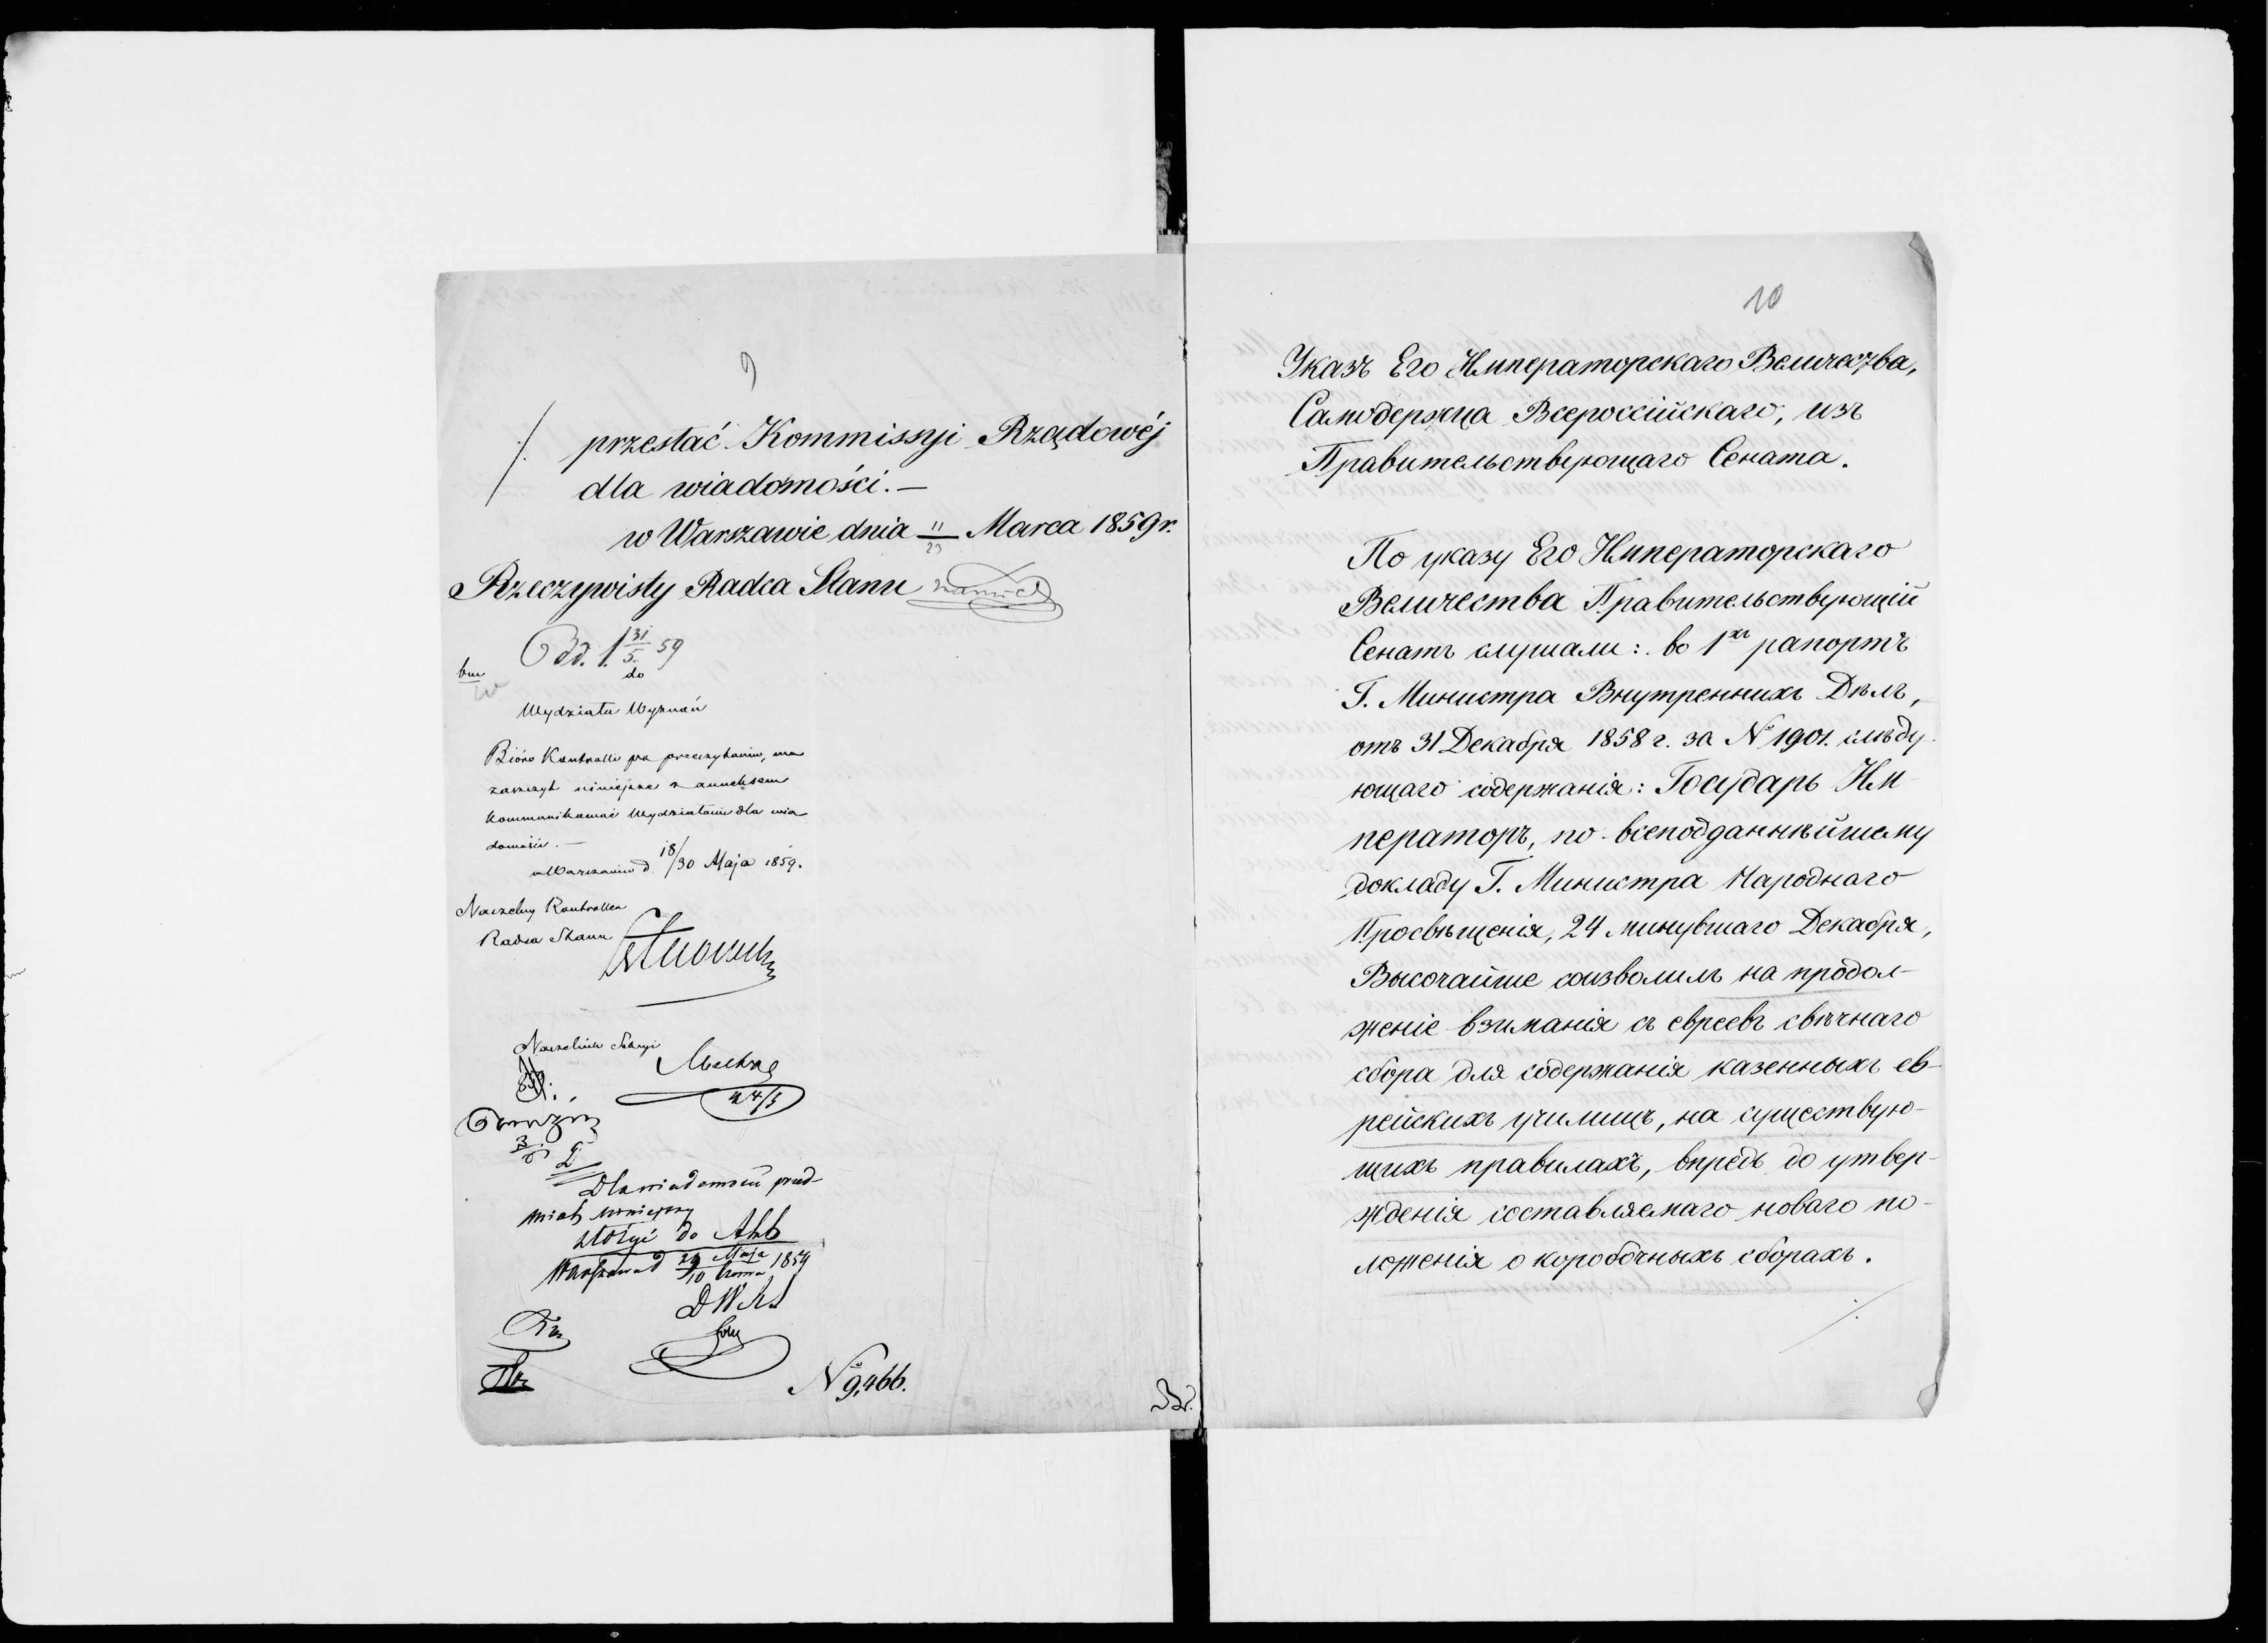 9
przestać Kommissyi Rządowéj
dla wiadomości. —
w Warszawie dnia 11/23 Marca 1859 r.
Rzeczywisty Radca Stanu
Odd. 1. 31/5 59
do
Wydziału Wyznań
Bióro Kontrolli po przeczytaniu, ma
zaszczyt niniejsze z anneksem
kommunikować Wydziałowi dla wia
domości. —
w Warszawie d. 18/30 Maja 1859.
Naczelny Kontroller
Radca Stanu
Naczelnik Sekcyi
Dla wiadomości
złożyć do Akt
Warszawa d 29 Maja/10 Czerwca 1859
№ 9,466.
10
Указъ Его Императорскаго Величества,
Самодержца Всероссійскаго, изъ
Правительствующаго Сената.
По указу Его Императорскаго
Величества Правительствующій
Сенатъ слушали: во 1хъ рапортъ
Г. Министра Внутреннихъ Дѣлъ,
отъ 31 Декабря 1858 г. за № 1901. слѣду
ющаго содержанія: Государь Им-
ператоръ, по всеподданнѣйшему
докладу Г. Министра Народнаго
Просвѣщенія, 24 минувшаго Декабря,
Высочайше соизволилъ на продол-
женіе взиманія съ евреевъ свѣчнаго
сбора для содержанія казенныхъ ев-
рейскихъ училищъ, на существую-
щихъ правилахъ, впредь до утвер-
жденія составляемаго новаго по-
ложенія о коробочныхъ сборахъ.